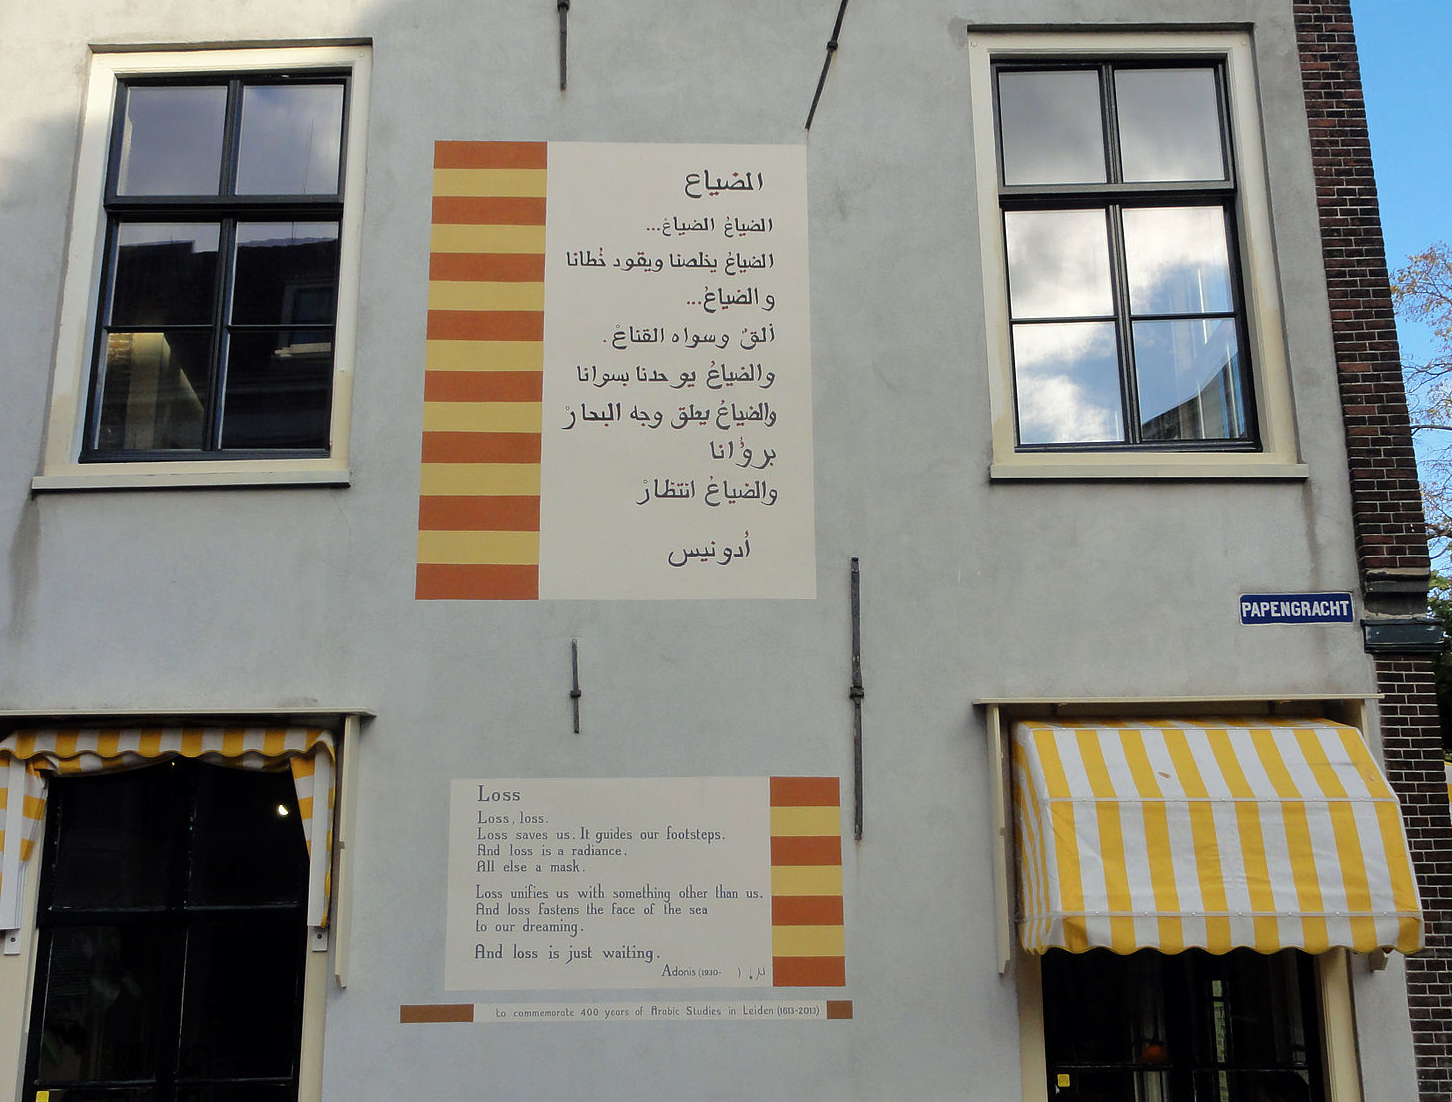 الضياع
الضياعُ الضياعْ...
الضياعُ يخلصنا ويقود خُطانا
والضياعُ...
ألقٌ وسواه القناعْ.
والضياعُ يوحدنا بسوانا
والضياعُ يعلق وجه البحارْ
برؤانا
والضياعُ انتظارْ
أدونيس
PAPENGRACHT
Loss
Loss, loss.
Loss saves us. It guides our footsteps.
And loss is a radiance.
All else a mask.
Loss unifies us with something other than us.
And loss fastens the face of the sea
to our dreaming.
And loss is just waiting.
Adonis (1930- )
to commemorate 400 years of Arabic Studies in Leiden (1613-2013)